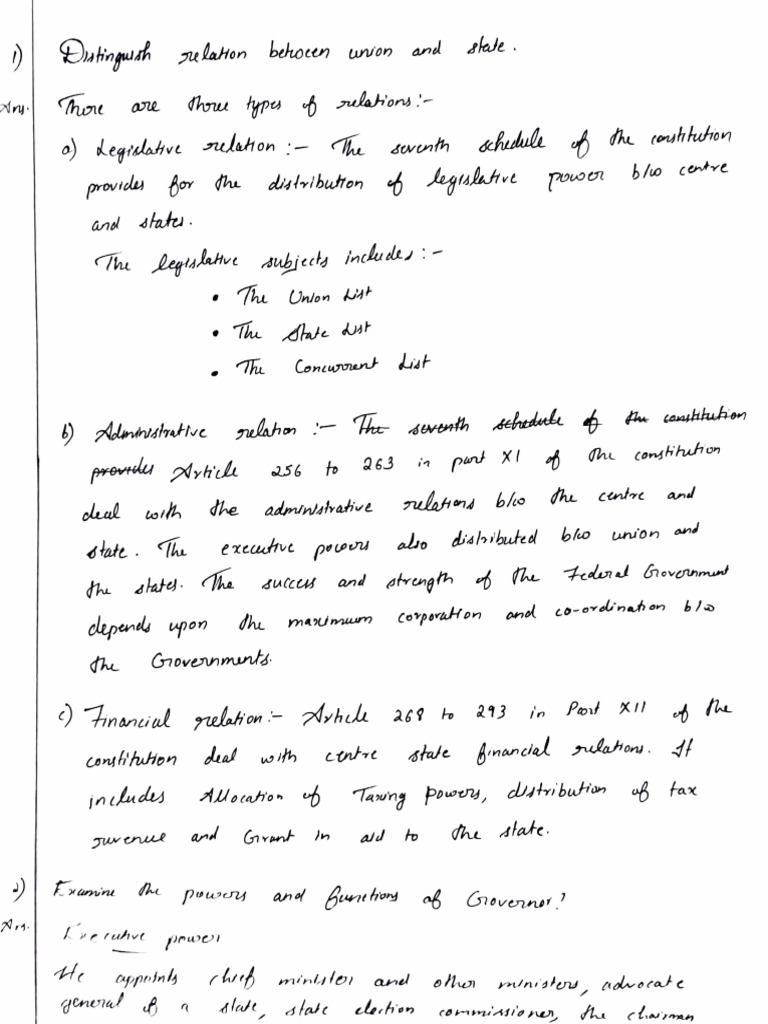 1) Distinguish relation between union and state.
Ans. There are three types of relations:-
a) Legislative relation :- The seventh schedule of the constitution
provides for the distribution of legislative power b/w centre
and states.
The legislative subjects includes :-
• The Union List
• The State List
• The Concurrent List
b) Administrative relation :- The seventh schedule of the constitution
provides Article 256 to 263 in part XI of the constitution
deal with the administrative relations b/w the centre and
state. The executive powers also distributed b/w union and
the states. The success and strength of the Federal Government
depends upon the maximum corporation and co-ordination b/w
the Governments.
c) Financial relation:- Article 268 to 293 in Part XII of the
constitution deal with centre state financial relations. It
includes Allocation of Taxing Powers, distribution of tax
revenue and Grant in aid to the state.
2) Examine the powers and functions of Governor?
Ans. Executive power
He appoints chief minister and other ministers, advocate
general of a state, state election commissioner, the chairman